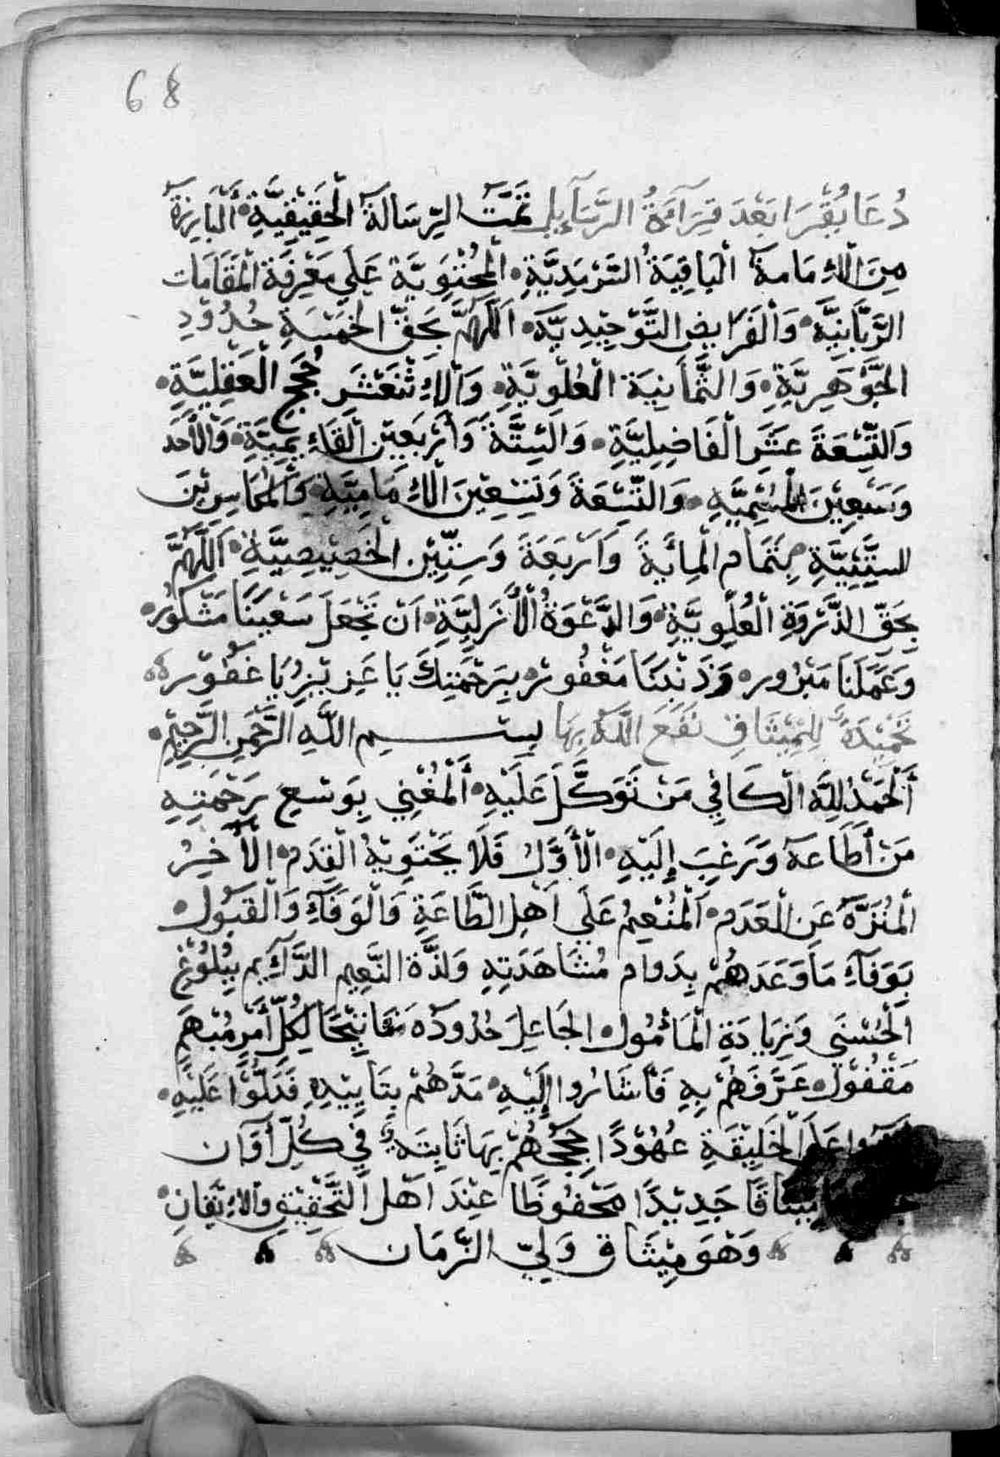 68
دُعَا يُقْرَا بَعْدَ قِرَآءَةُ الرَّسَآيِل تَمَّتَ الرِّسَالَةُ الْحَقِيقِيَّةِ أَلْبَارِزَةُ
مِنَ الْإِمَامَةُ الْبَاقِيَةُ السَّرْمَدِيَّةِ الْمُحْتَوِيَّةَ عَلَي مَعْرِفَةِ الْمَقَامَات
الرَّبَّانِيَّه وَالْفَرَايض التَّوْحِيْدِيَّة اَللَّهُمَّ بَحَقِّ الْخَمْسَةِ حُدُوْدِ
الْجَوْهَرِيَّةِ وَالثَّمَانِيَة الْعُلْوِيَّةِ وَالْإِثْنَعْشَر حُجَجِ الْعَقْلِيَّةِ
وَالتِّسْعَةَ عَشَرَ الْفَاضِلِيَّةِ وَالسِتَّةَ وَأَرْبَعِيْن الْقَاءِيمِيَّةِ وَالْأَحَد
وَسَبْعِيْنَ وَالتِّسْعَةَ وَتِسْعِيْنَ الْإِمَامِيَّةِ
بِتَمَام الْمِائَيةَ وَاَرْبَعَةَ وَسِتِّيْن الْخَصِيْصِيَّةِ اَللَّهُمَّ
بِحَقِّ الذَّرْوَةِ الْعُلْوِيَّةِ وَالدَّعْوَةُ الْأَزَلِيَّةِ اَنْ تَجْعَلَ سَعْيَنَا مَشْكُوْر
وَعَمَلَنَا مَبْرُور وَذَنْبَنَا مَغْفُوْر بِرَحْمَتِكَ يَا عَزِيْزُ يَا غَفُوْر
تَحْمِيْدَةً لِلْمِيْثَاقِ نَفَعَ اللَّهُ بِهَا بِسْمِ اللَّهِ الرَّحْمَنِ الرَّحِيْمِ
أَلْحَمْدُ لِلَّهِ الْكَافِي مَنْ تَوَكَّلَ عَلَيْهِ أَلْمُغْنِي بِوَسْعِ رَحْمَتِهِ
مَنْ أَطَاعَهُ وَرَغِبَ إِلَيْهِ الْأَوَّلُ فَلَا يَحْتَوِيْهُ الْقِدَم الْأَخِرُ
الْمُنَزَّهَ عَنِ الْعَدَم اَلْمُنْعِمُ عَلَي اَهْلِ الطَّاعَةِ وَالْوَفَآءِ وَالْقَبُول
بِوَفَآءِ مَا وَعَدَهُمْ بِدَوام مُشَاهَدَتِهِ وَلَذَّة النَّعِيم الدَّآيِم بِبُلُوْغِ
الْحُسْنَي وَزِيَادَةِ الْمَاْمُول الْجَاعِلَ حُدُودَهُ مَفَاتِيْحًا لِكُلِّ أَمْرٍ مُبْهَمَ
مَقْفُوْل عَرَّفَهُمْ بِهِ فَأَشَارُوا إِلَيْهِ مَدَّهُمْ بِتَايِيْدِهِ فَدَلُّوْا عَلَيْهِ
عَلَى الْخَلِيْقَةِ عُهُوْدًا حُجَجُهُمْ بِهَا ثَابِتَةٍ فِي كُلِّ أَوَان
مِيْثَاقًا جَدِيْدًا مَحْفُوظًا عِنْدَ اَهْلِ التَّحْقِيْقِ وَالْإِتْقَانِ
وَهْوَ مِيْثَاق وَلِيِّ الزَّمَان